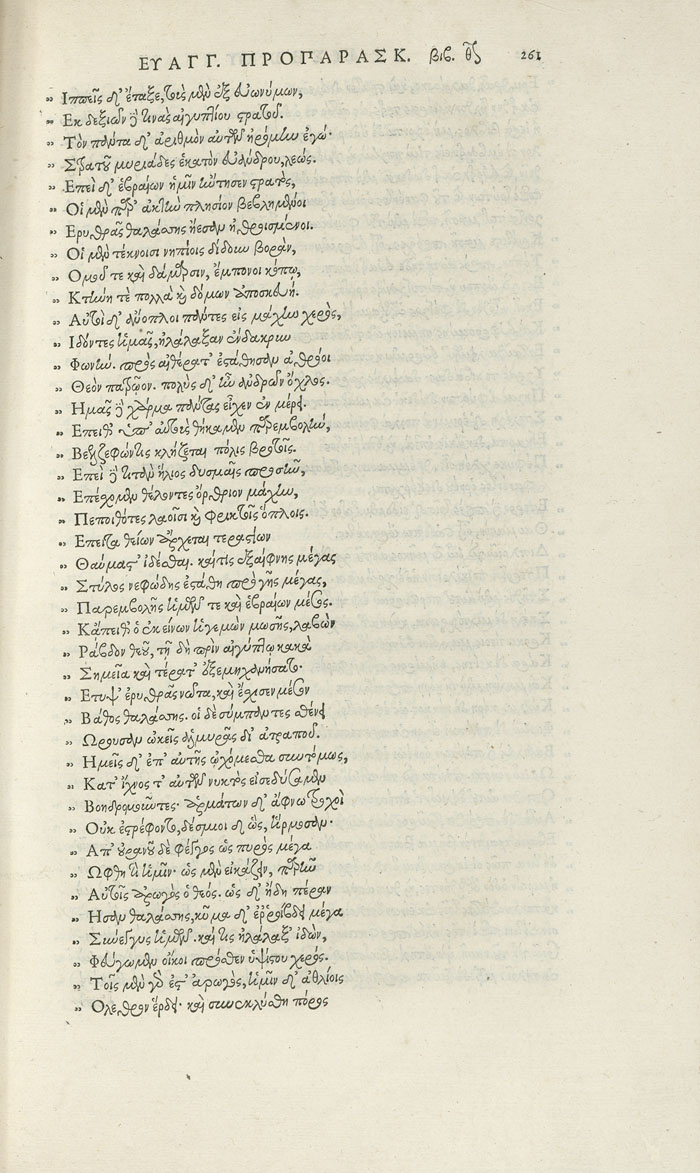 ΕΥΑΓΓ. ΠΡΟΠΑΡΑΣΚ. βιβ. θ 261
„ Ιππεῖς δ' ἔταξε, τοὺς μὲν ἐξ εὐωνύμων,
„ Ἐκ δεξιῶν δὲ πάντας αἰγυπτίου στρατοῦ.
„ Τὸν πάντα δ' ἀριθμὸν αὐτῶν ἠρόμην ἐγώ·
„ Στρατοῦ μυριάδες ἑκατὸν εὐάνδρου, λεώς.
„ Ἐπεὶ δ' ἑβραίων ἡμῖν ἤντησεν στρατὸς,
„ Οἱ μὲν παρ' ἀκτὴν πλησίον βεβλημένοι
„ Ερυθρᾶς θαλάσσης ἦεσαν ἠθροισμένοι.
„ Οἱ μὲν τέκνοισι νηπίοις δίδουν βορὰν,
„ Ομοῦ τε καὶ δάμαρσιν, ἔμπονοι κόπῳ,
„ Κτήνη τὲ πολλὰ καὶ δόμων ἀποσκευή.
„ Αὐτοὶ δ' ἀνοπλοι πάντες εἰς μάχην χερὸς,
„ Ιδόντες ἡμᾶς, ἠλάλαξαν ἐνδακρυν
„ Φωνήν. πρὸς αἰθέρα τ' ἐστάθησαν ἀθρόοι
„ Θεὸν πατρῷον. πολὺς δ' ἦν ἀνδρῶν ὄχλος.
„ Ημᾶς δὲ χάρμα πάντας εἶχεν ἐν μέρει.
„ Επειθ' ὑπ' αὐτοὺς θήκαμεν παρεμβολὴν,
„ Βεελζεφών τις κλήζεται πόλις βροτοῖς.
„ Επεὶ δὲ τιτὰν ἥλιος δυσμαῖς προσῆν,
„ Επέσχομεν θέλοντες ὄρθριον μάχην,
„ Πεποιθότες λαοῖσι καὶ φρικτοῖς ὅπλοις.
„ Επειτα θείων ἄρχεται τεραστίων
„ Θαύματ' ἰδέσθαι. καίτις ἐξαίφνης μέγας
„ Στύλος νεφώδης ἐστάθη πρὸ γῆς μέγας,
„ Παρεμβολῆς ἡμῶν τε καὶ ἑβραίων μέσος.
„ Κἄπειθ' ὁ ἐκείνων ἡγεμὼν μωσῆς, λαβὼν
„ Ράβδον θεοῦ, τῇ δὴ πρὶν αἰγύπτῳ κακὰ
„ Σημεῖα καὶ τέρατ' ἐξεμηχανήσατο·
„ Ετυψ' ἐρυθρᾶς νῶτα, καὶ ἔσχισεν μέσον
„ Βάθος θαλάσσης. οἱ δὲ σύμπαντες σθένει
„ Ωρουσαν ὠκεῖς ἁλμυρᾶς δι' ἀτραποῦ.
„ Ημεῖς δ' ἐπ' αὐτῆς ᾠχόμεσθα συντόμως,
„ Κατ' ἴχνος τ' αὐτῶν νυκτὸς εἰσεδύσαμεν
„ Βοηδρομοῦντες· ἁρμάτων δ' ἄφνω τροχοὶ
„ Οὐκ ἐστρέφοντο, δέσμιοι δ' ὣς, ἥρμοσαν·
„ Απ' οὐρανοῦ δὲ φέγγος ὡς πυρὸς μέγα
„ Ωφθη τι ἡμῖν· ὡς μὲν εἰκάζειν, παρῆν
„ Αὐτοῖς ἀρωγὸς ὁ θεός. ὡς δ' ἤδη πέραν
„ Ησαν θαλάσσης, κῦμα δ' ἐῤῥοίβδει μέγα
„ Σύνεγγυς ἡμῶν. καί τις ἠλάλαξ' ἰδὼν,
„ Φεύγωμεν οἴκοι πρόσθεν ὑψίστου χερός.
„ Τοῖς μὲν γάρ ἐστ' ἀρωγὸς, ἡμῖν δ' ἀθλίοις
„ Ολεθρον ἕρδει· καὶ συνεκλύσθη πόρος